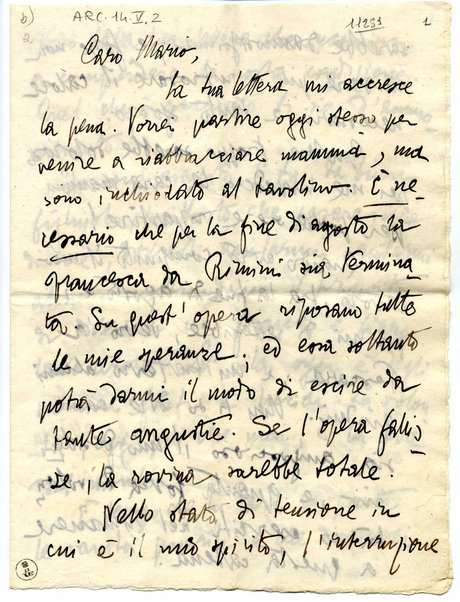 b)
a
ARC. 14. V. 2
11253
1
Caro Mario,
la tua lettera mi accresce
la pena. Vorrei partire oggi stesso per
venire a riabbracciare mammà, ma
sono inchiodato al tavolino. È ne-
cessario che per la fine di agosto la
Francesca da Rimini sia termina-
ta. Su quest'opera riposano tutte
le mie speranze; ed essa soltanto
potrà darmi il modo di escire da
tante angustie. Se l'opera fallis-
se, la rovina sarebbe totale.
Nello stato di tensione in
cui è il mio spirito, l'interruzione